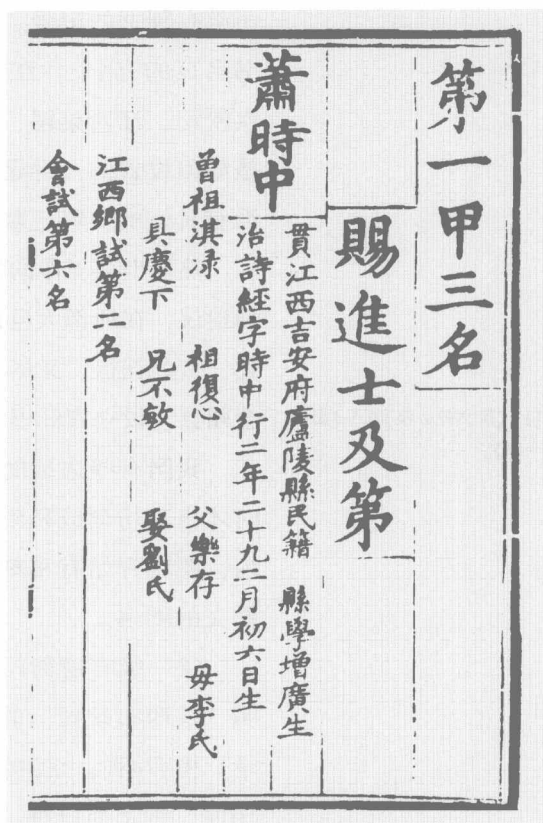 第一甲三名
賜進士及第
蕭時中
貫江西吉安府廬陵縣民籍 縣學增廣生
治詩經字時中行二年二十九二月初六日生
曾祖淇渌 祖復心 父樂存 母李氏
具慶下 兄不敏 娶劉氏
江西鄉試第二名
會試第六名